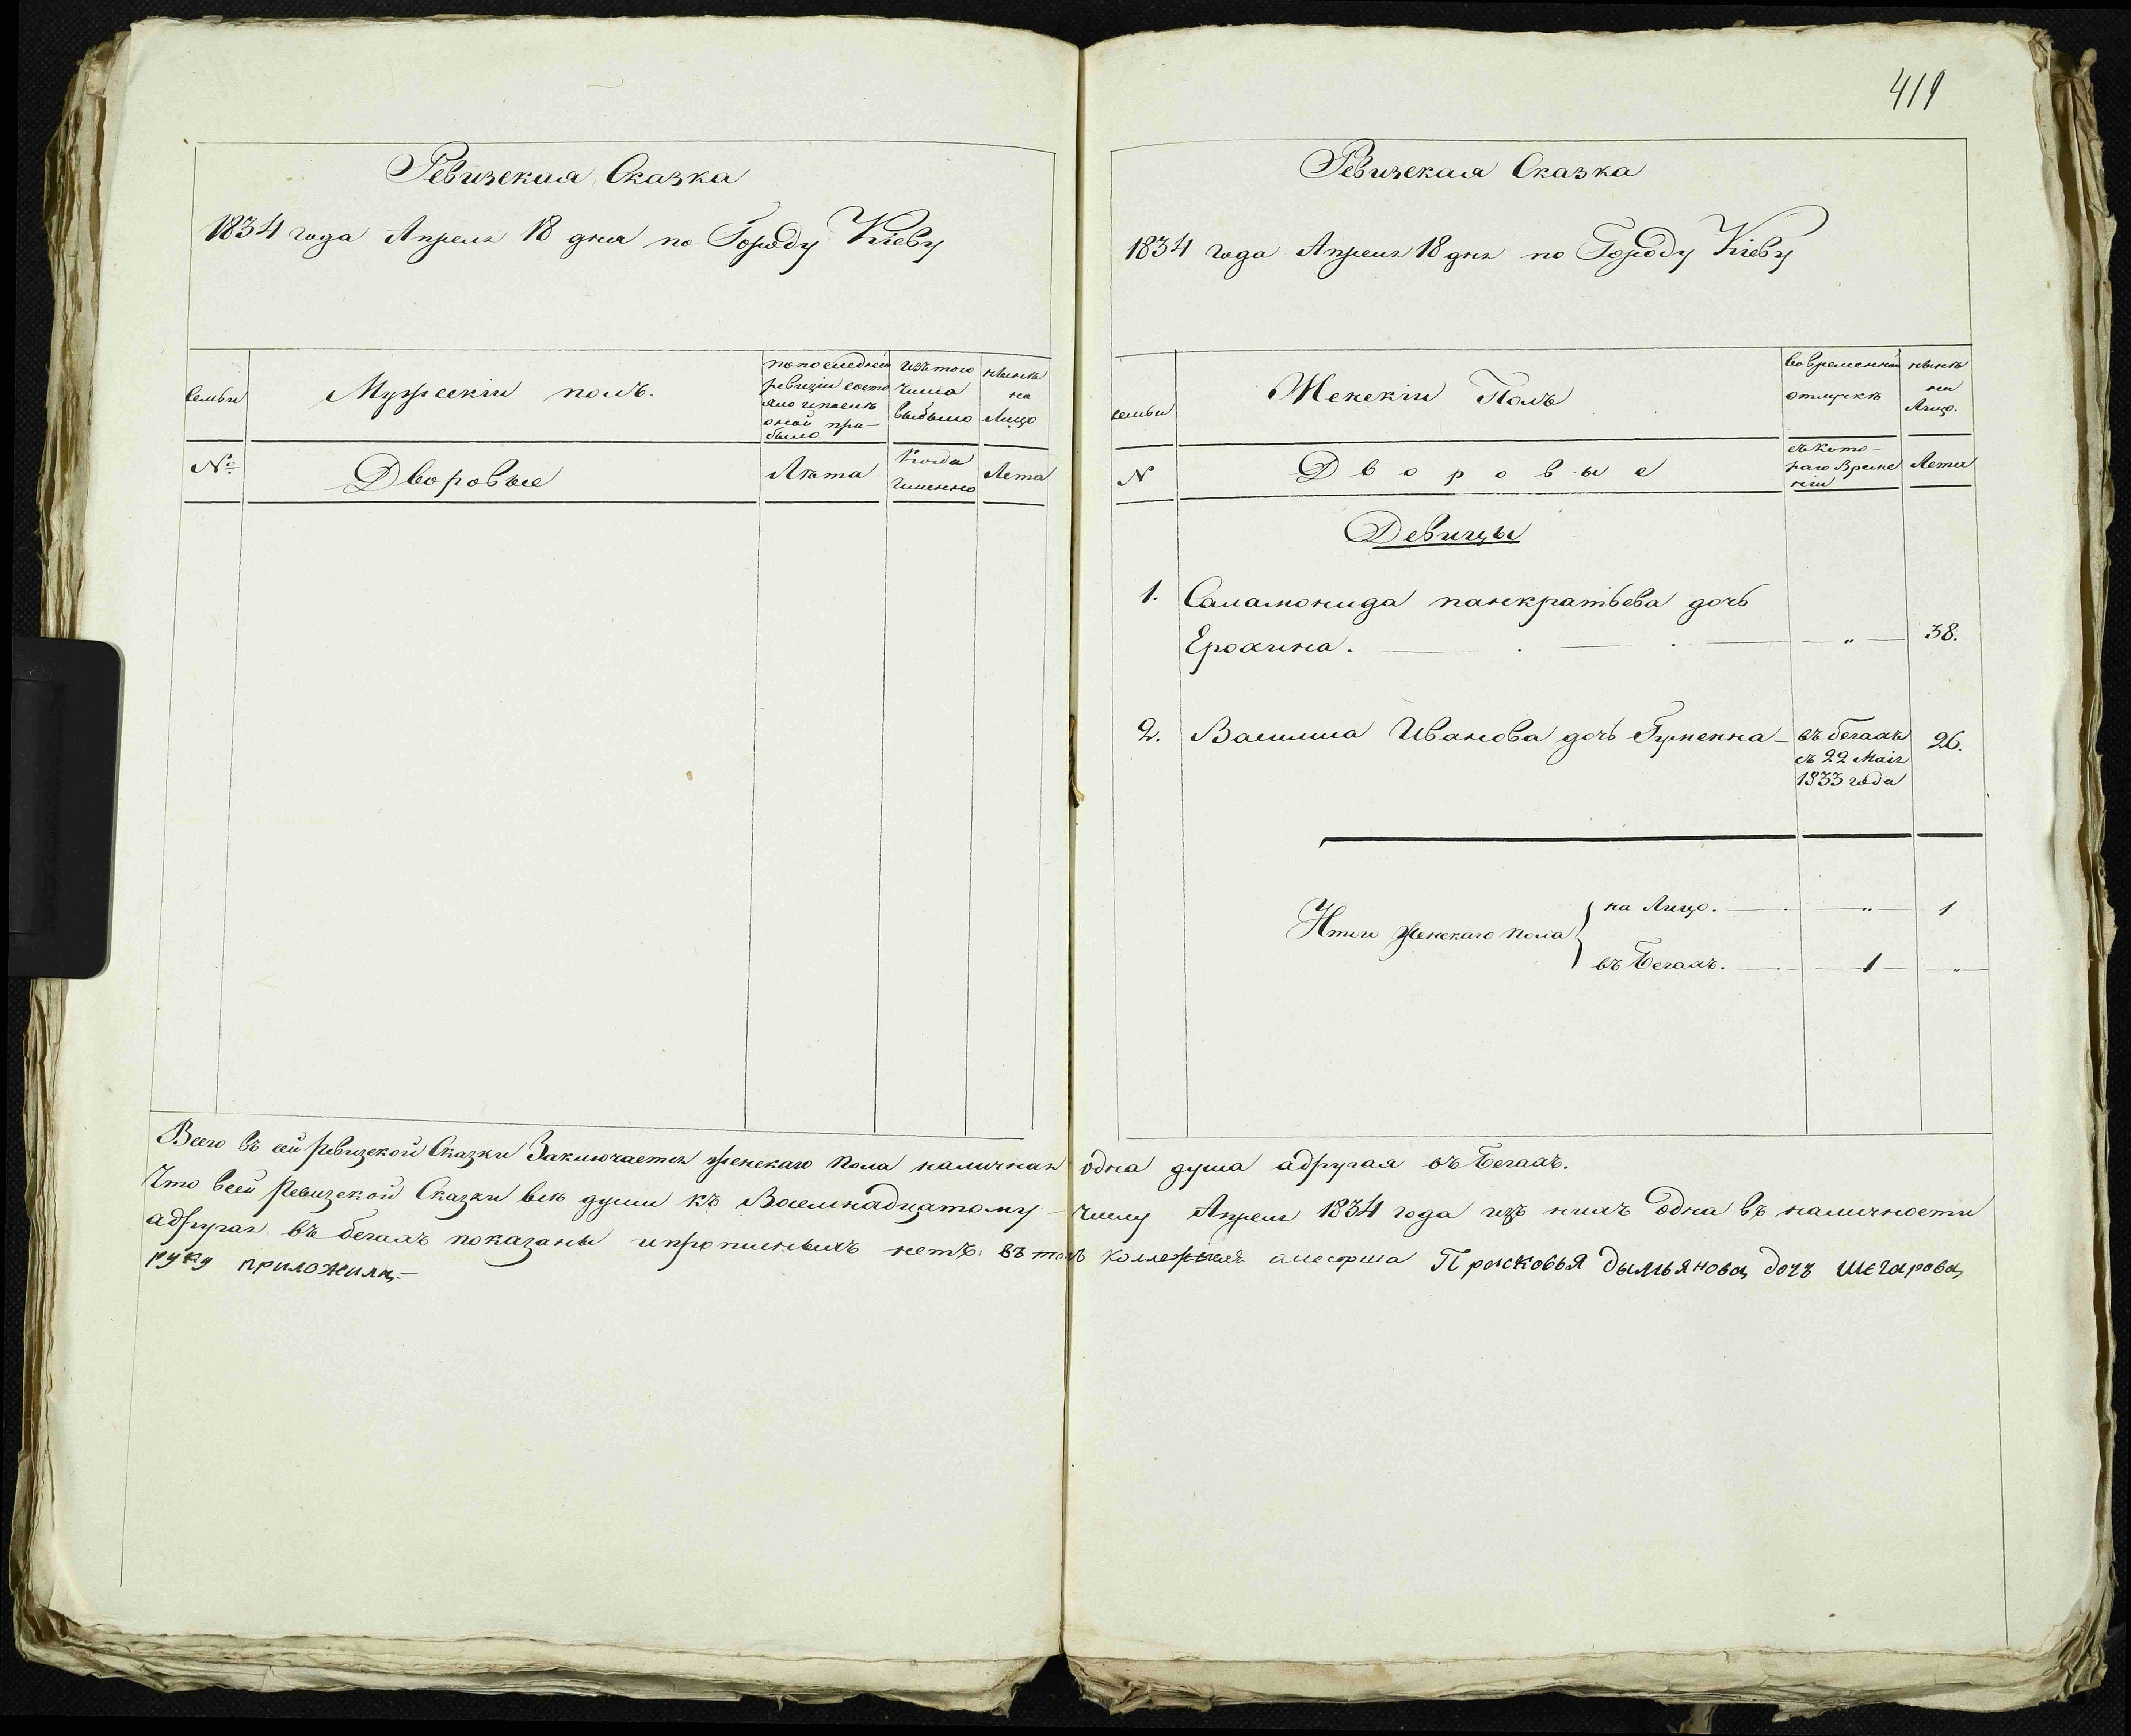 419
Ревизская Сказка
1834 года Апреля 18 дня по Городу Кіеву
семьи
Мужескій полъ.
попоследней ревизіи состояло ипослѣ оной прибыло
изътого числа выбыло
нынѣ на Лицо
№
Дворовые
Лѣта
Когда именно
Лета
Ревизская Сказка
1834 года Апреля 18 дня по Городу Кіеву
семьи
Женскій Полъ
вовременной отлучкѣ
нынѣ на Лицо.
N
Дворовые
съкотораго времени
Лета
Девицы
1. Саламонида панкратьева дочь
Ерохина. — " — 38.
2. Василиса Иванова дочь — въ бегахъ 26.
съ 22 Маія
1833 года
Итого женскаго пола
на Лицо. — " — 1
въ Бегахъ. — 1 — "
Всего въ сей Ревизской Сказки Заключается женскаго пола наличная одна душа адругая въ Бегахъ.
Что всей Ревизской Сказки всѣ души къ Восемнадцатому числу Апреля 1834 года изъ нихъ одна въ наличности
адругая въ бегахъ показаны ипрописныхъ нетъ. въ томъ Прасковья дымьянова дочъ шегарова
руку приложила.